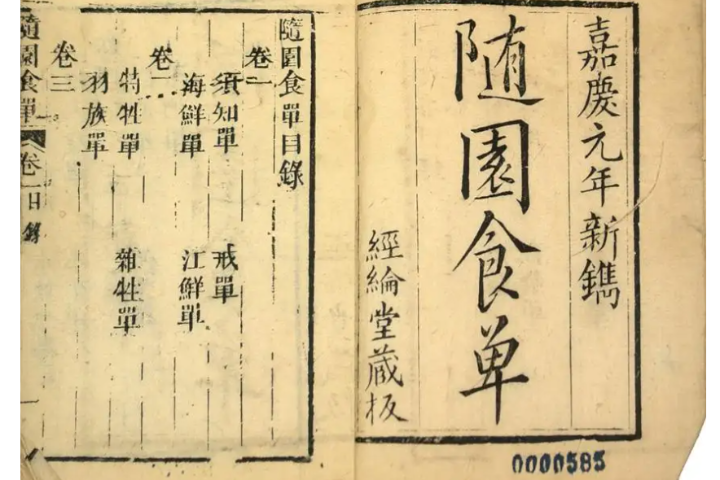 嘉慶元年新鐫
随園食单
經綸堂蔵板
0000585
隨園食單目錄
卷一
須知單 戒單
海鮮單 江鮮單
卷二
特牲單 雜牲單
羽族單
卷三
隨園食單 卷一目錄 一